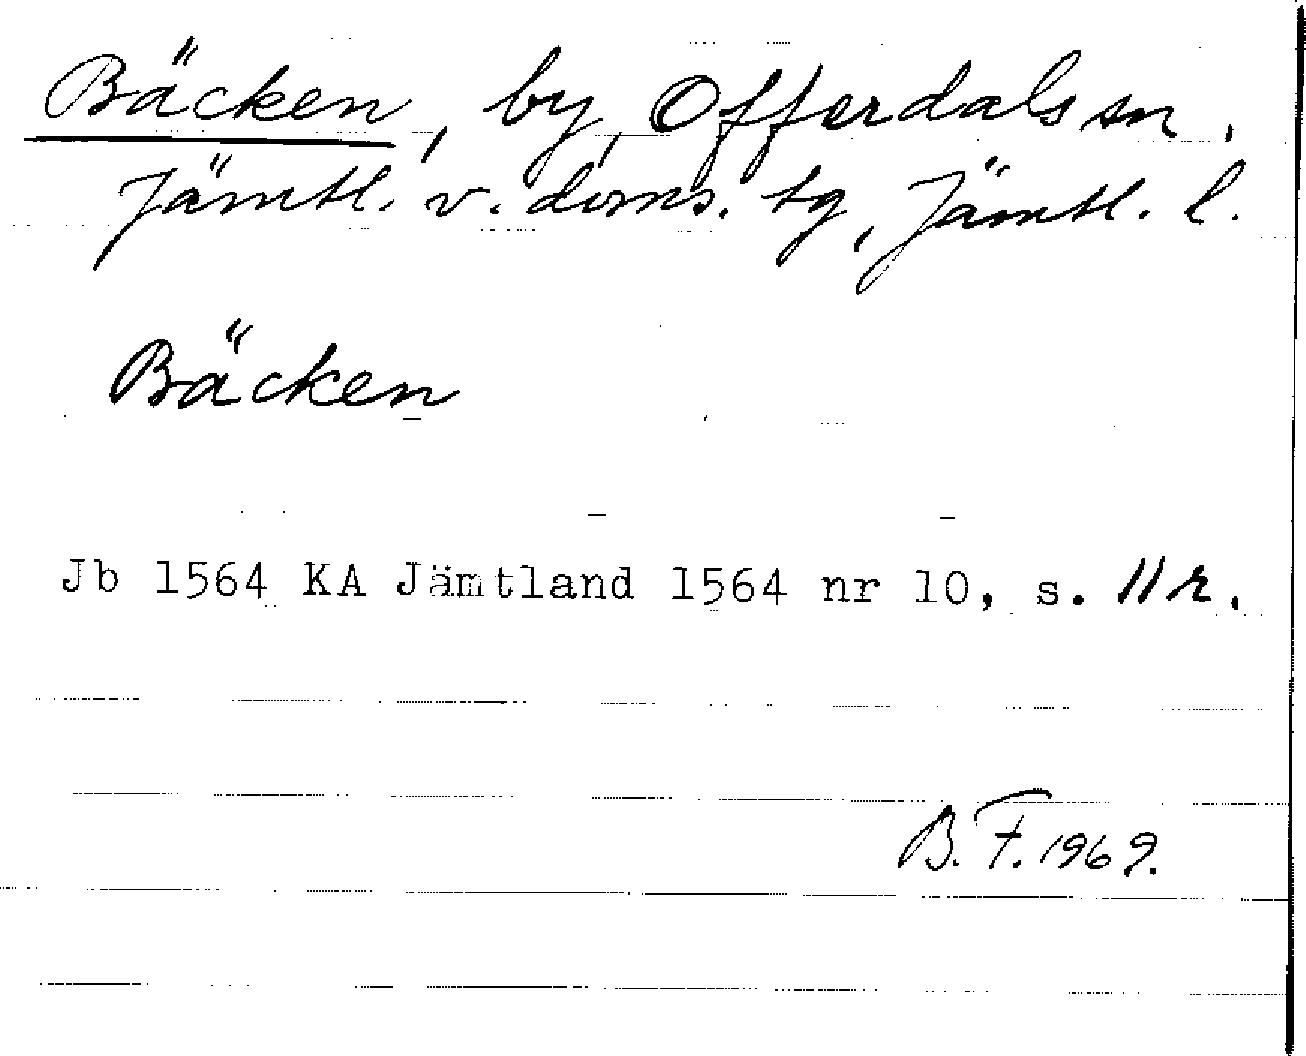 Bäcken, by, Offerdals sn,
Jämtl. v. doms. tg, Jämtl. l.
Bäcken
Jb 1564 KA Jämtland 1564 nr 10, s. 11r.
B. F. 1969.